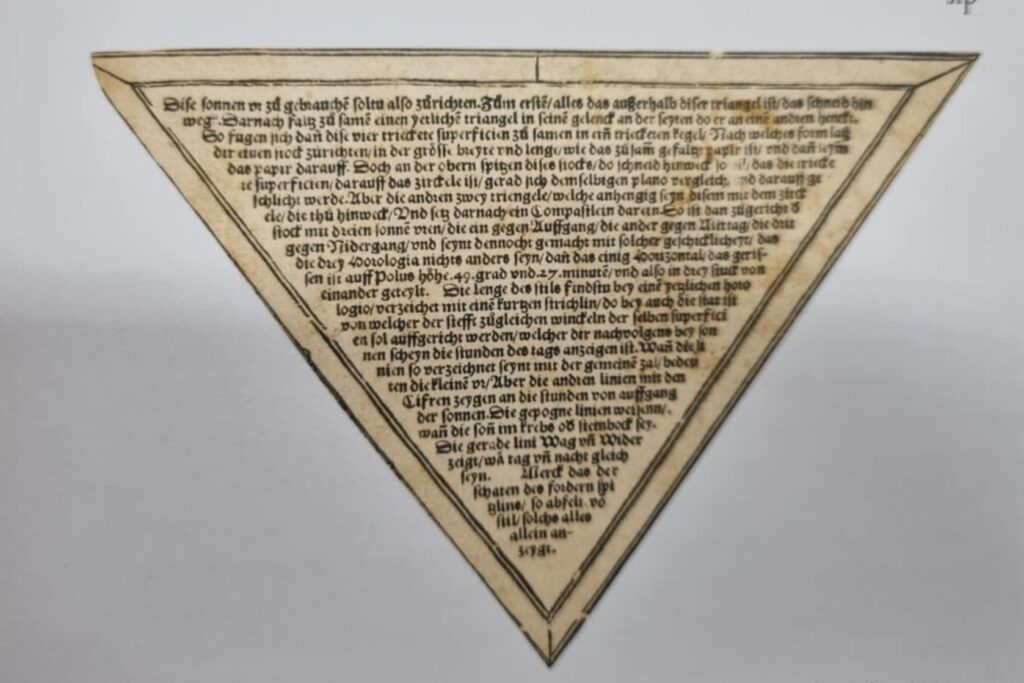 Dise sonnen vr zů gebrauchē soltu also zůrichten. Zům erstē/ alles das außerhalb diser triangel ist/ das schneid hin
weg. Darnach faltz zů samē einen yetlichē triangel in seinē gelenck an der seyten do er an einē andren henckt.
So fugen sich dañ dise vier trieckete superficien zů samen in eiñ trieckten kegel/ Nach welches form laß
dir einen stock zůrichten/ in der grösse breyte vnd lenge/ wie das zůsam̄ gefaltz papir ist/ vnd dañ leym
das papir darauff. Doch an der obern spitzen dises stocks/ do schneid hinweck so / das die triecke
te superficien/ darauff das zirckele ist/ gerad sich demselbigen plano vergleich/ vnd darauff ge
schlicht werde. Aber die andren zwey triengele/ welche anhengig seyn disem mit dem zirck
ele/ die thů hinweck/ Vnd setz darnach ein Compastlein darein. So ist dan zůgericht d
stock mit dreien sonnē vren/ die ein gegen Auffgang/ die ander gegen Mittag/ die drit
gegen Nidergang/ vnd seynt dennocht gemacht mit solcher geschicklicheyt/ das
die drey Horologia nichts anders seyn/ dañ das einig Houzontal/ das geris-
sen ist auff Polus höhe. 49. grad vnd. 27. minutē/ vnd also in drey stuck von
einander geteylt. Die lenge des stils findstu bey einē yeglichen horo
logio/ verzeichet mit einē kurtzen strichlin/ do bey auch die stat ist
von welcher der stefft zůgleichen winckeln der selben superfici
en sol auffgericht werden/ welcher dir nachvolgens bey son
nen scheyn die stunden des tags anzeigen ist. Wañ die li
nien so verzeichnet seynt mit der gemeinē zal/ bedeu
ten die kleinē vr/ Aber die andren linien mit den
Cifren zeygen an die stunden von auffgang
der sonnen. Die gepogne linien weisenn/
wañ die soñ im krebs od steinbock sey.
Die gerade lini Wag vñ Wider
zeigt/ wā tag vñ nacht gleich
seyn. Merck das der
schaten des fordern spi
tzlins/ so abfelt vō
stil/ solchs alles
allein an-
zeygt.